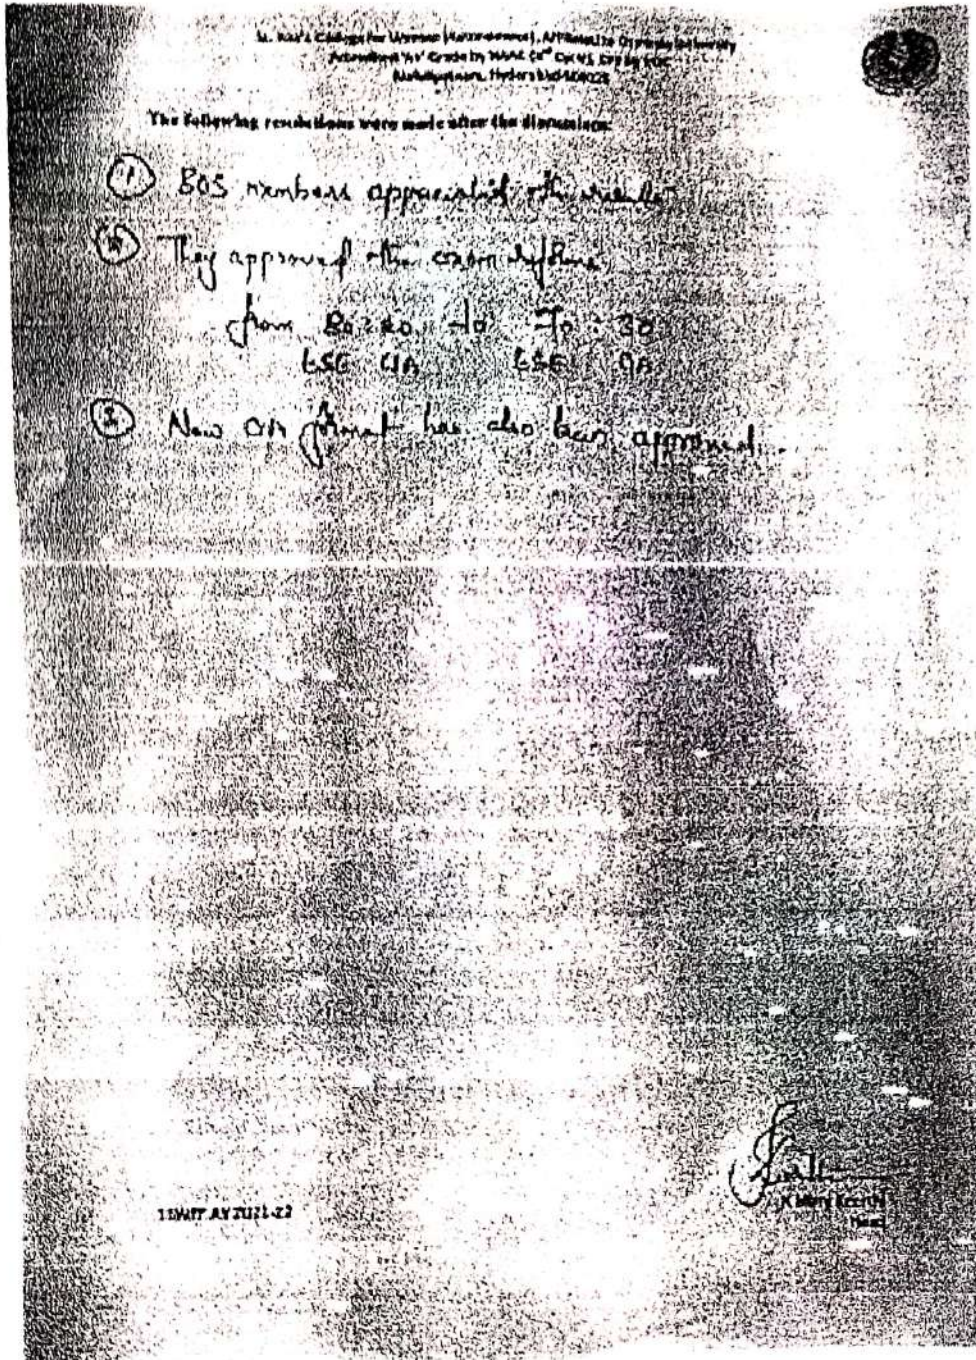 St. Ann's College for Women (Autonomous), Affiliated to Osmania University
Accredited 'A+' Grade by NAAC Cycle), CPE by UGC
Mehdipatnam, Hyderabad-500028
The following resolutions were made after the discussion:
① BOS members appreciated the results
② They approved the exam
from 80:20 to 70:30
ESE CIA ESE CIA
③ New CIA format has also been approved.
AY 2021-22
Head